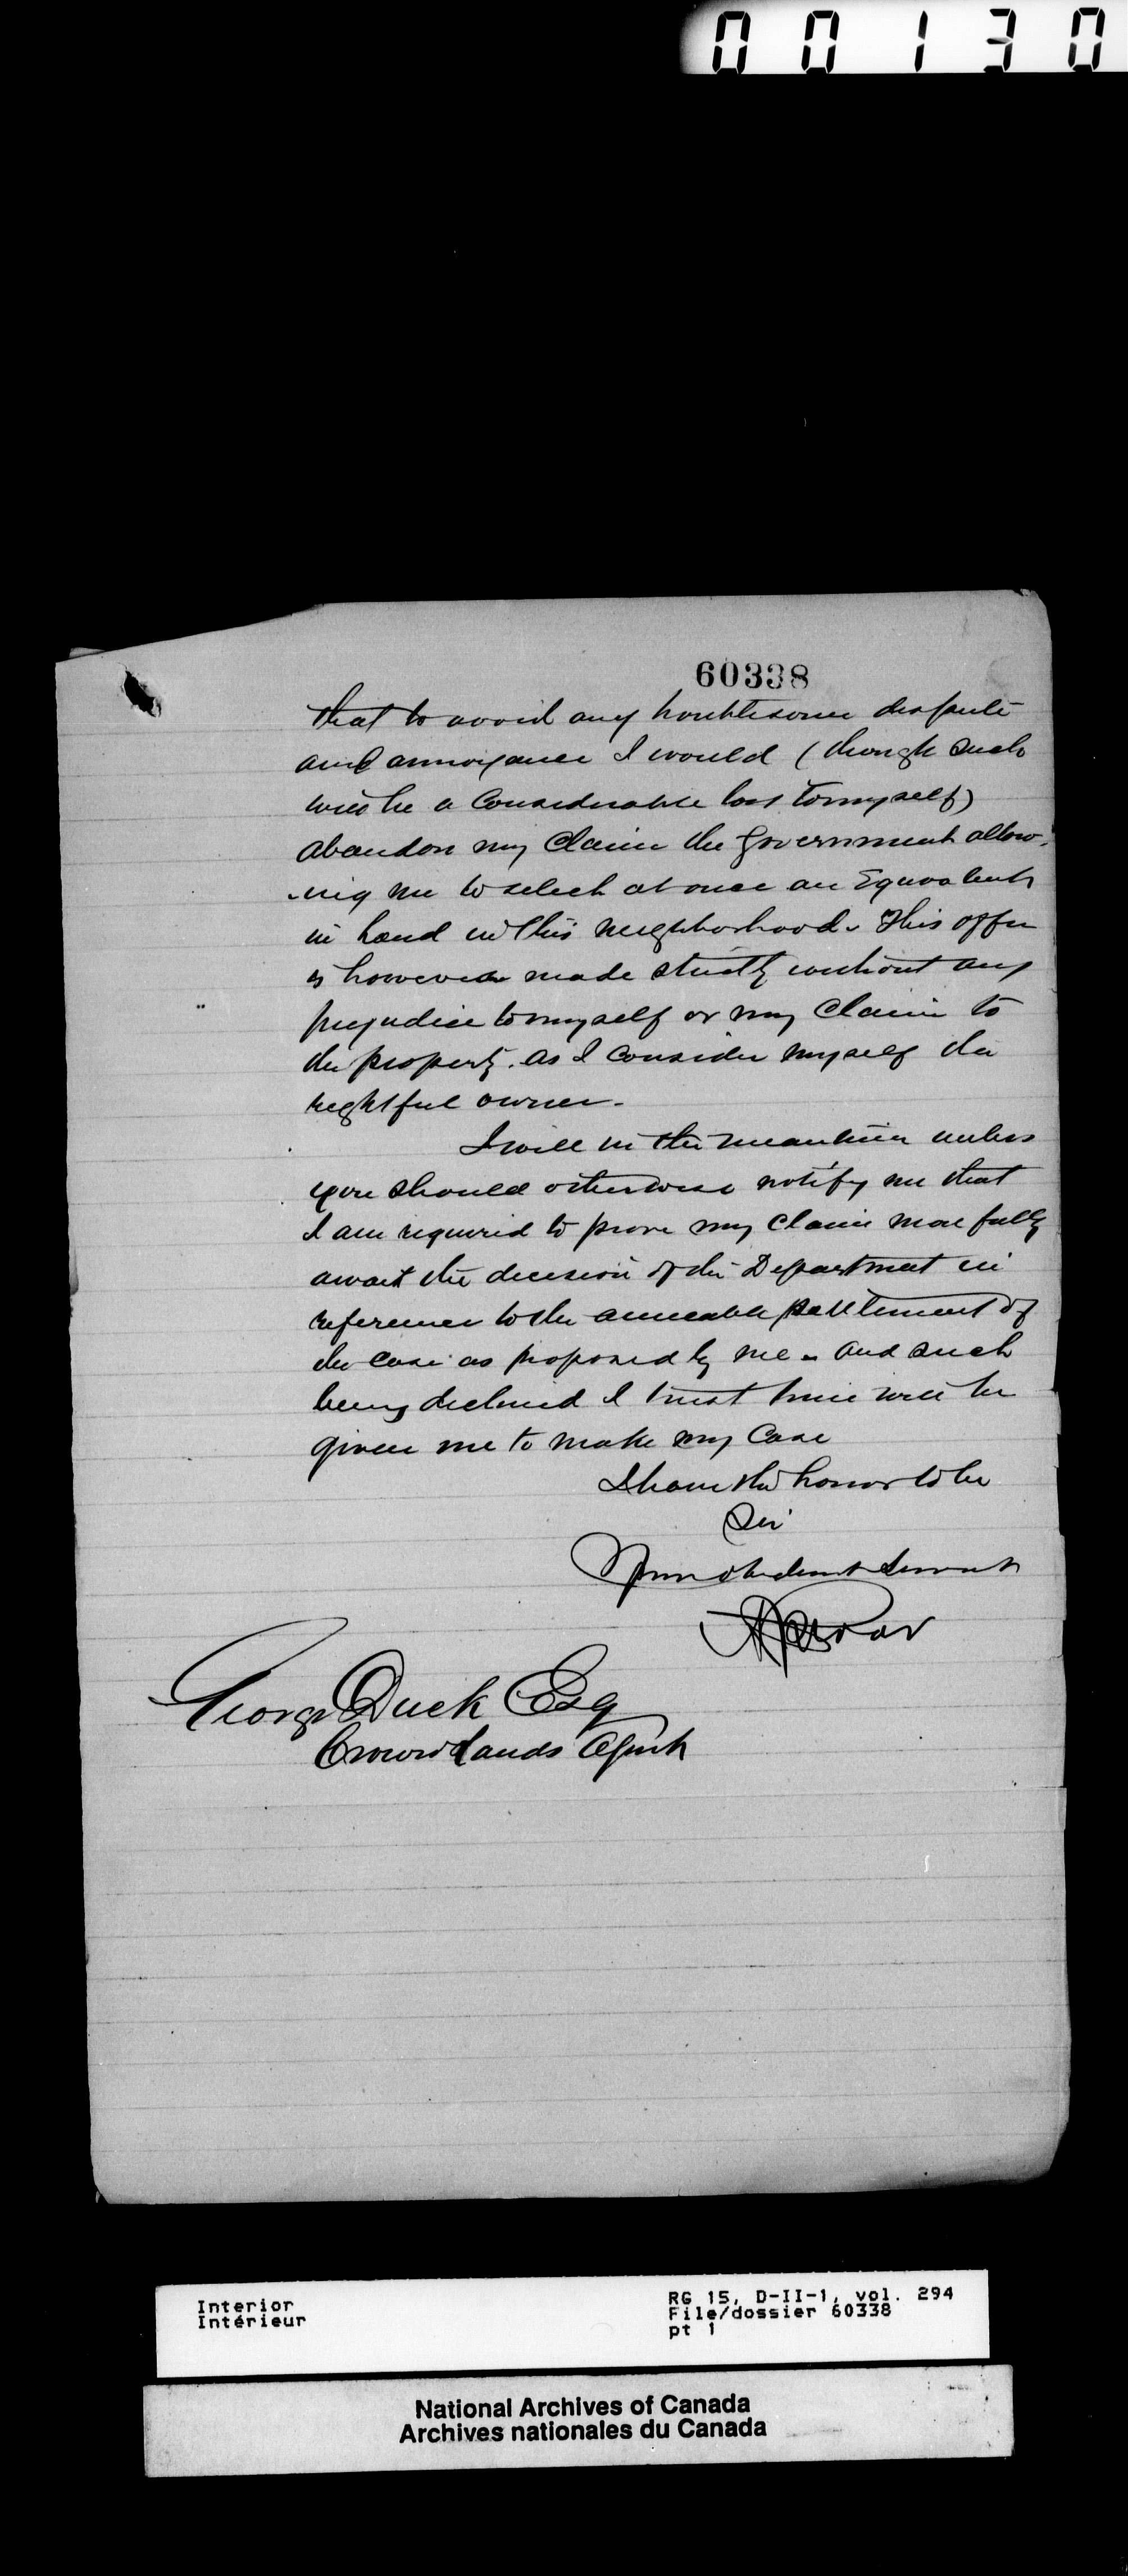 00130
60338
that to avoid any troublesome dispute
and annoyance I would (though such
will be a Considerable loss to myself)
abandon my Claim the Government allow-
-ing me to select at once an Equivalent
in land in this neighborhood. This offer
is however made strictly without any
prejudice to myself or my Claim to
the property. as I Consider myself the
rightful owner.
I will in the meantime unless
you should otherwise notify me that
I am required to prove my Claim more fully
await the decision of the Department in
reference to the amicable settlement of
the case as proposed by me - and such
being declined I trust time will be
given me to make my Case
I have the honor to be
Sir
Your obedient Servant
George Duck Esq
Crown Lands Agent
Interior
Intérieur
RG 15, D-II-1, vol. 294
File/dossier 60338
pt 1
National Archives of Canada
Archives nationales du Canada